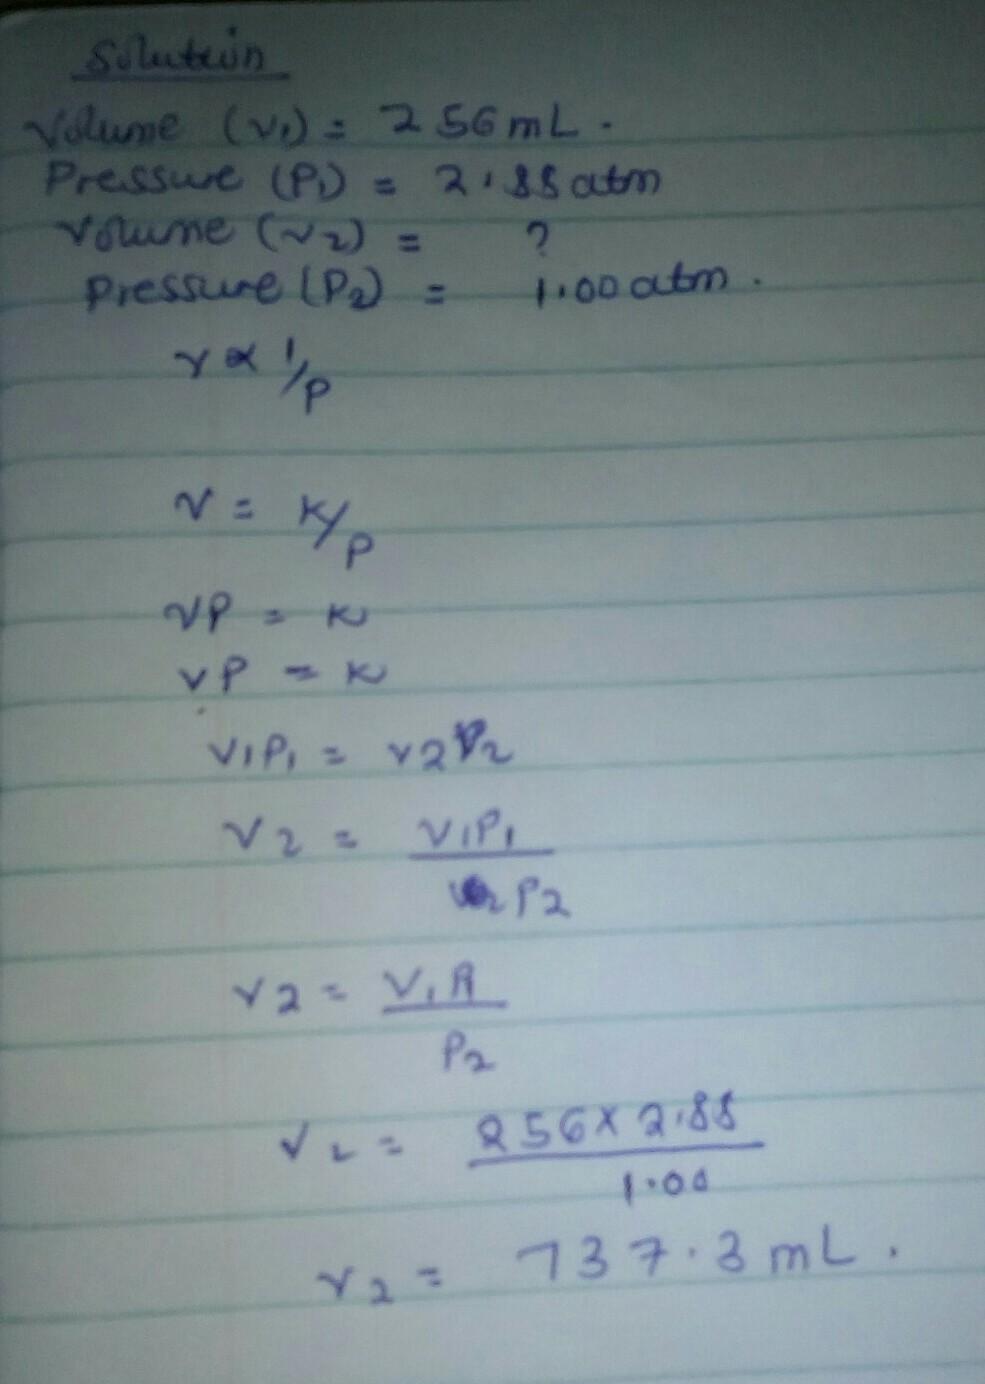 Solution
Volume (V1) = 256 mL.
Pressure (P1) = 2.88 atm
Volume (V2) = ?
Pressure (P2) = 1.00 atm.
V ∝ 1/P
V = K/P
VP = K
VP = K
V1P1 = V2P2
V2 = V1P1
P2
V2 = V1P1
P2
V2 = 256 x 2.88
1.00
V2 = 737.3 mL.